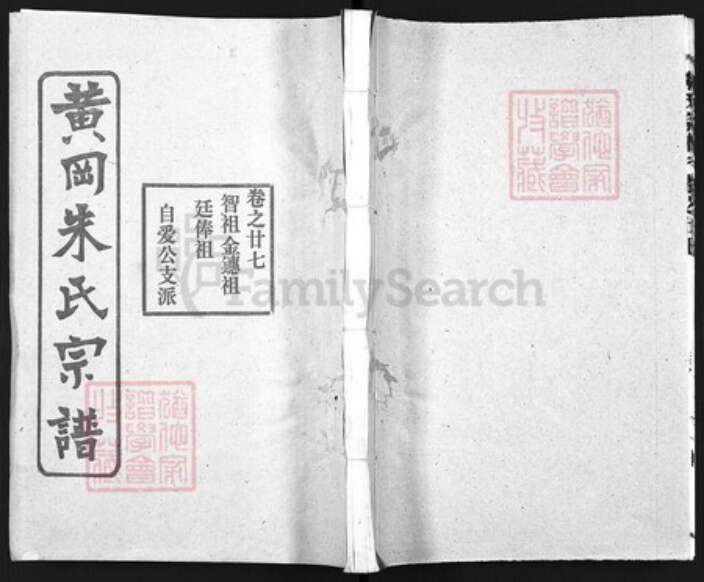 黄冈朱氏宗譜
卷之廿七
智祖金鏸祖
廷俸祖
自爱公支派
FamilySearch
猶他家
譜學會
收藏
猶他家
譜學會
收藏